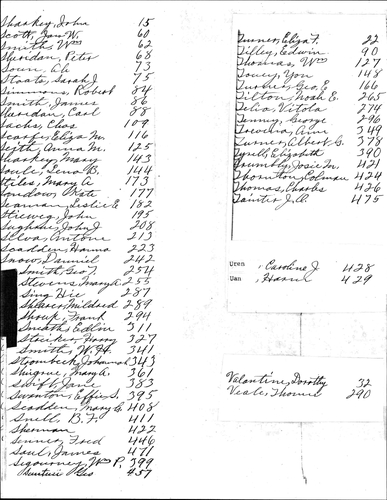 Sharkey, John 15
Scott, Jon W. 60
Smith, Wm 62
Sheridan, Peter 68
Soun, Ah 73
Staats, Sarah J 75
Simmons, Robert 84
Smith, James 86
Sheridan, Carl 88
Sachs, Chas 109
Scarff, Eliza M. 116
Seith, Anna M. 125
Sharkey, Mary 143
Soule, Lena B. 144
Stiles, Mary A. 173
Kate 177
Seaman, Leslie E 182
Stieweg, John 195
Sughrue, John J 208
Silva, Antone 213
Scadden, Hanna 223
Snow, Daniel 242
Smith, Geo T. 254
Stevens, Mary A. 255
Sing Hie 287
Mildred 289
Shoup, Frank 294
Edlin 311
Striker, Harry 327
Smith, W. H. 341
Strombeck, Johanna 343
Shigrue, Mary A. 361
Swift, Jane 383
Swanton, Effie S. 395
Scadden, Mary G. 408
Snell, B. F. 411
Sherman 422
Senner, Fred 446
Saul, James 471
Sigourney, Wm P. 399
Geo 457
Turner, Eliza F. 22
Tilley, Edwin 90
Thomas, Wm 127
Toney, Yon 148
Geo E 166
Tilton, Noah E. 265
Telia, Victa 274
Tenny, George 296
Trevena, Ann 349
Turner, Albert G. 378
Tyrell, Elizabeth 390
Trumbly, Josie M. 421
Thornton, Colman 424
Thomas, Charles 426
Tainter, J. A. 475
Uren , Caroline J 428
Uan , Harrn 429
Valantine, Dorothy 32
Veale, Thomas 290